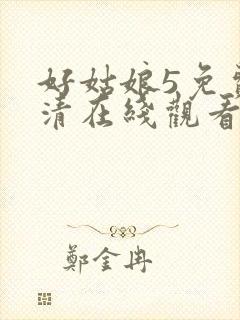 好姑娘5免費
清在綫觀看
鄭金冉